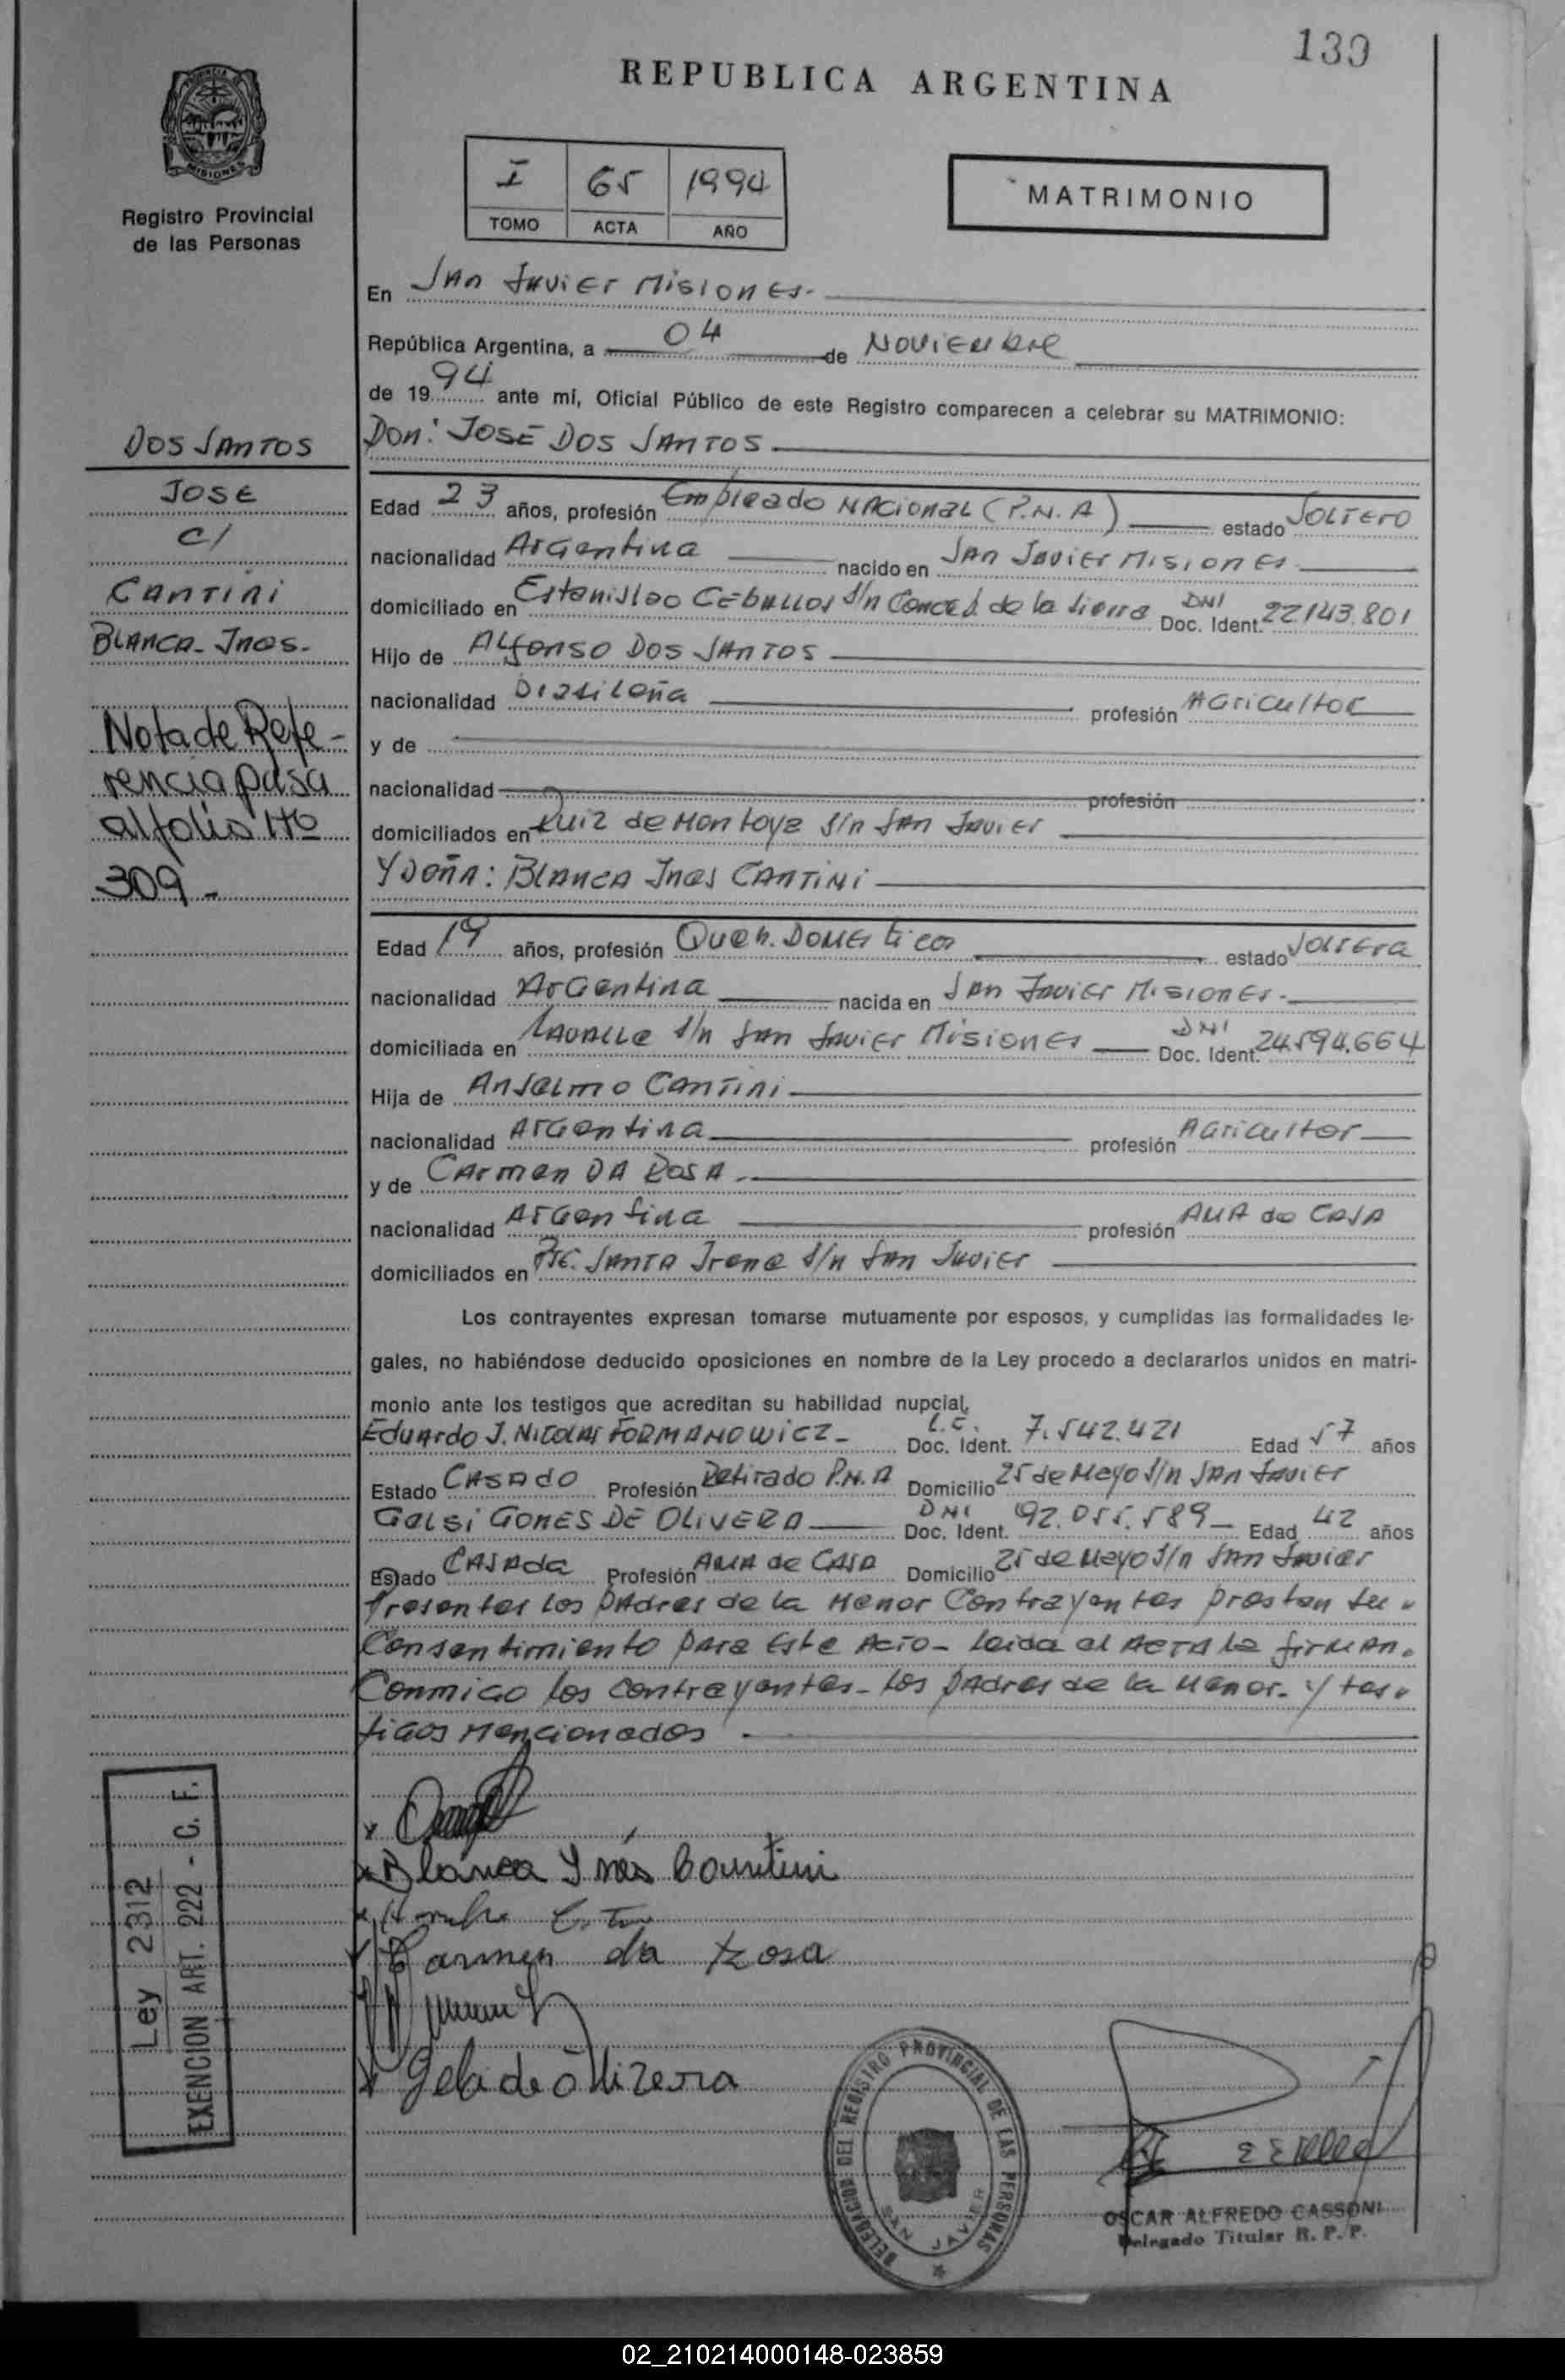 139
REPUBLICA ARGENTINA
MISIONES
Registro Provincial
de las Personas
I 65 1994
TOMO ACTA AÑO
MATRIMONIO
En San Javier Misiones.
República Argentina, a 04 de Noviembre
de 1994 ante mí, Oficial Público de este Registro comparecen a celebrar su MATRIMONIO:
Don: JOSÉ DOS SANTOS
DOS SANTOS
JOSE
C/
CANTINI
BLANCA - INES.
Nota de Refe-
rencia pasa
al folio Nº
309.-
Edad 23 años, profesión Empleado Nacional (P.N.A) estado Soltero
nacionalidad Argentina nacido en San Javier Misiones
domiciliado en Estanislao Ceballos s/n Conced de la Sierra DNI Doc. Ident. 22143.801
Hijo de Alfonso DOS SANTOS
nacionalidad Brasileña profesión Agricultor
y de
nacionalidad profesión
domiciliados en Ruiz de Montoya s/n San Javier
Y DOÑA: BLANCA Ines CANTINI
Edad 19 años, profesión Queh. Domesticos estado Soltera
nacionalidad Argentina nacida en San Javier Misiones.
domiciliada en Lavalle s/n San Javier Misiones DNI Doc. Ident. 24.594.664
Hija de Anselmo Cantini
nacionalidad Argentina profesión Agricultor
y de Carmen DA ROSA
nacionalidad Argentina profesión AMA de CASA
domiciliados en Pje. Santa Irene s/n San Javier
Los contrayentes expresan tomarse mutuamente por esposos, y cumplidas las formalidades le-
gales, no habiéndose deducido oposiciones en nombre de la Ley procedo a declararlos unidos en matri-
monio ante los testigos que acreditan su habilidad nupcial,
Eduardo J. Nicolas FORMANOWICZ - L.E. Doc. Ident. 7.542.421 Edad 57 años
Estado CASADO Profesión Retirado P.N.A Domicilio 25 de Mayo s/n San Javier
Gelsi GOMES DE OLIVERA DNI Doc. Ident. 92.055.589 - Edad 42 años
Estado CASADA Profesión AMA de CASA Domicilio 25 de Mayo s/n San Javier
Presentes los padres de la Menor Contrayentes prestan su
Consentimiento para Este Acto - leida el Acta la firman
Conmigo los contrayentes - los padres de la Menor - y tes-
tigos Mencionados
Blanca Ynés Cantini
Carmen da Rosa
Ley 2312
EXENCION ART. 222 - C. F.
DELEGACION DEL REGISTRO PROVINCIAL DE LAS PERSONAS
SAN JAVIER
OSCAR ALFREDO CASSONI
Delegado Titular R. P. P.
02_210214000148-023859